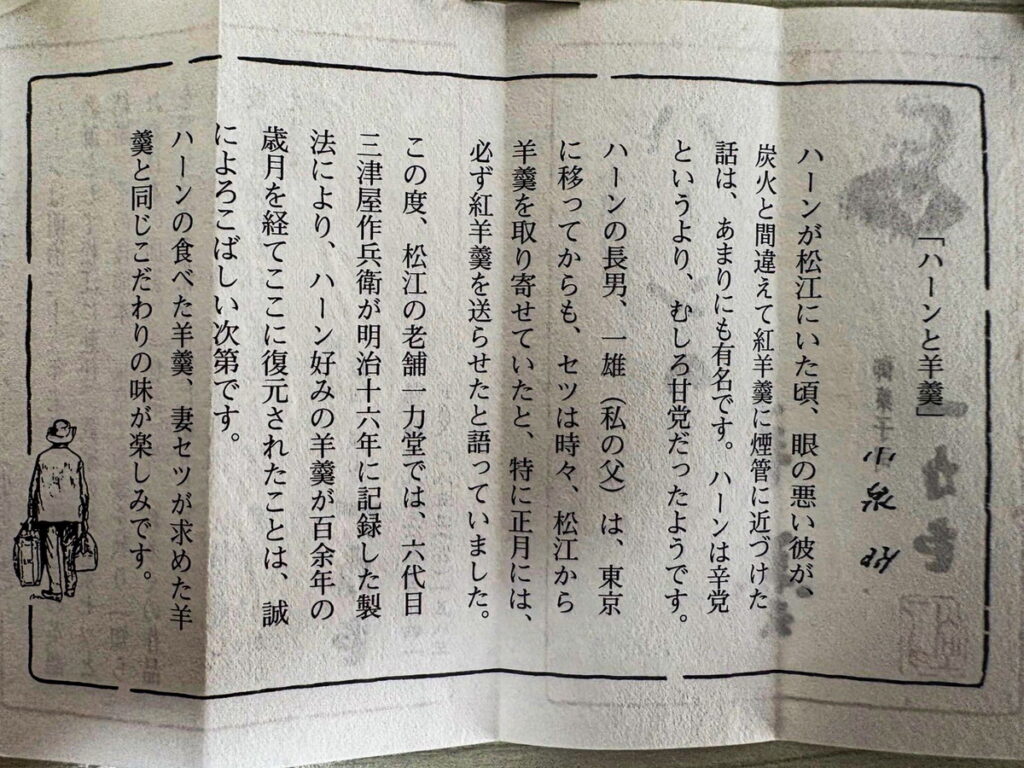 「ハーンと羊羹」
小泉 時
ハーンが松江にいた頃、眼の悪い彼が、
炭火と間違えて紅羊羹に煙管に近づけた
話は、あまりにも有名です。ハーンは辛党
というより、むしろ甘党だったようです。
ハーンの長男、一雄（私の父）は、東京
に移ってからも、セツは時々、松江から
羊羹を取り寄せていたと、特に正月には、
必ず紅羊羹を送らせたと語っていました。
この度、松江の老舗一力堂では、六代目
三津屋作兵衛が明治十六年に記録した製
法により、ハーン好みの羊羹が百余年の
歳月を経てここに復元されたことは、誠
によろこばしい次第です。
ハーンの食べた羊羹、妻セツが求めた羊
羹と同じこだわりの味が楽しみです。